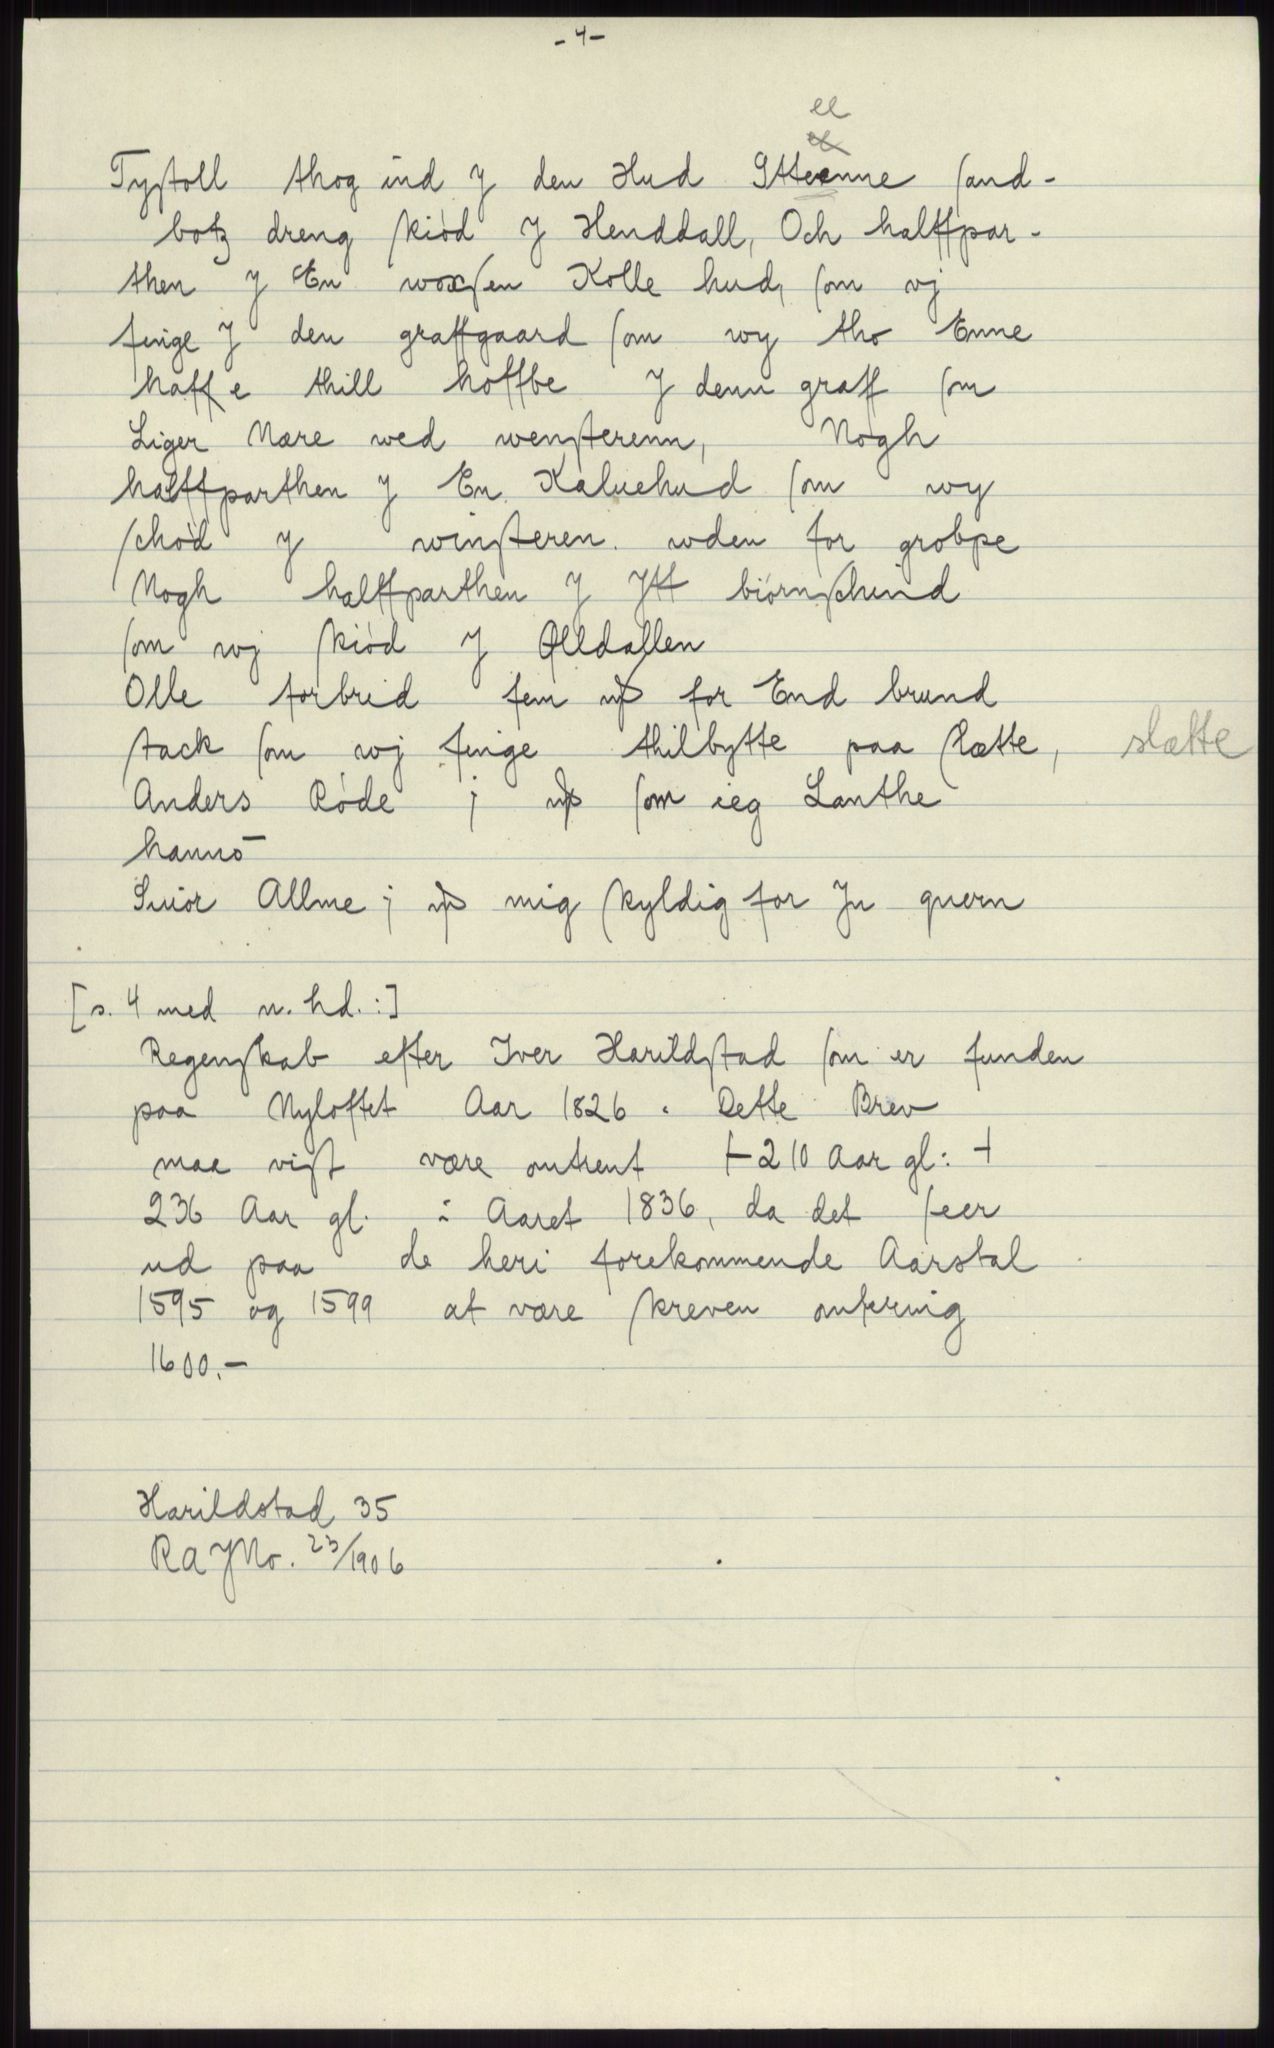 -4-
ee
Tystoll thog ind y den Hud Stteenne sand-
botz dreng skiød y Henddall, Och halffpar-
then y En woxsen Kolle hud, som vj
finge y den graffgaard som wy tho Enne
haffe thill hoffbe y denn graff som
Liger Nære wed wensterenn, Nogh
halffparthen y En Kaluehud som wy
schød y winsteren. wden for grobpe
Nogh halffparthen y ytt biørnschind
som wj skiød y Ølldallen
Olle forbrid fem for End brund
stack som wj finge thilbytte paa slætte, slætte
Anders Røde j som ieg Lanthe
hanno
Siuor Allme j mig skyldig for Ju quern
[s. 4 med n. hd.:]
Regenskab efter Iver Harildstad som er funden
paa Nyloftet Aar 1826. Dette Brev
maa vist være omtrent ⊢210 Aar gl: ⊣
236 Aar gl. i Aaret 1836, da det seer
ud paa de heri forekommende Aarstal
1595 og 1599 at være skreven omkring
1600.-
Harildstad 35
RA JNo. 23/1906